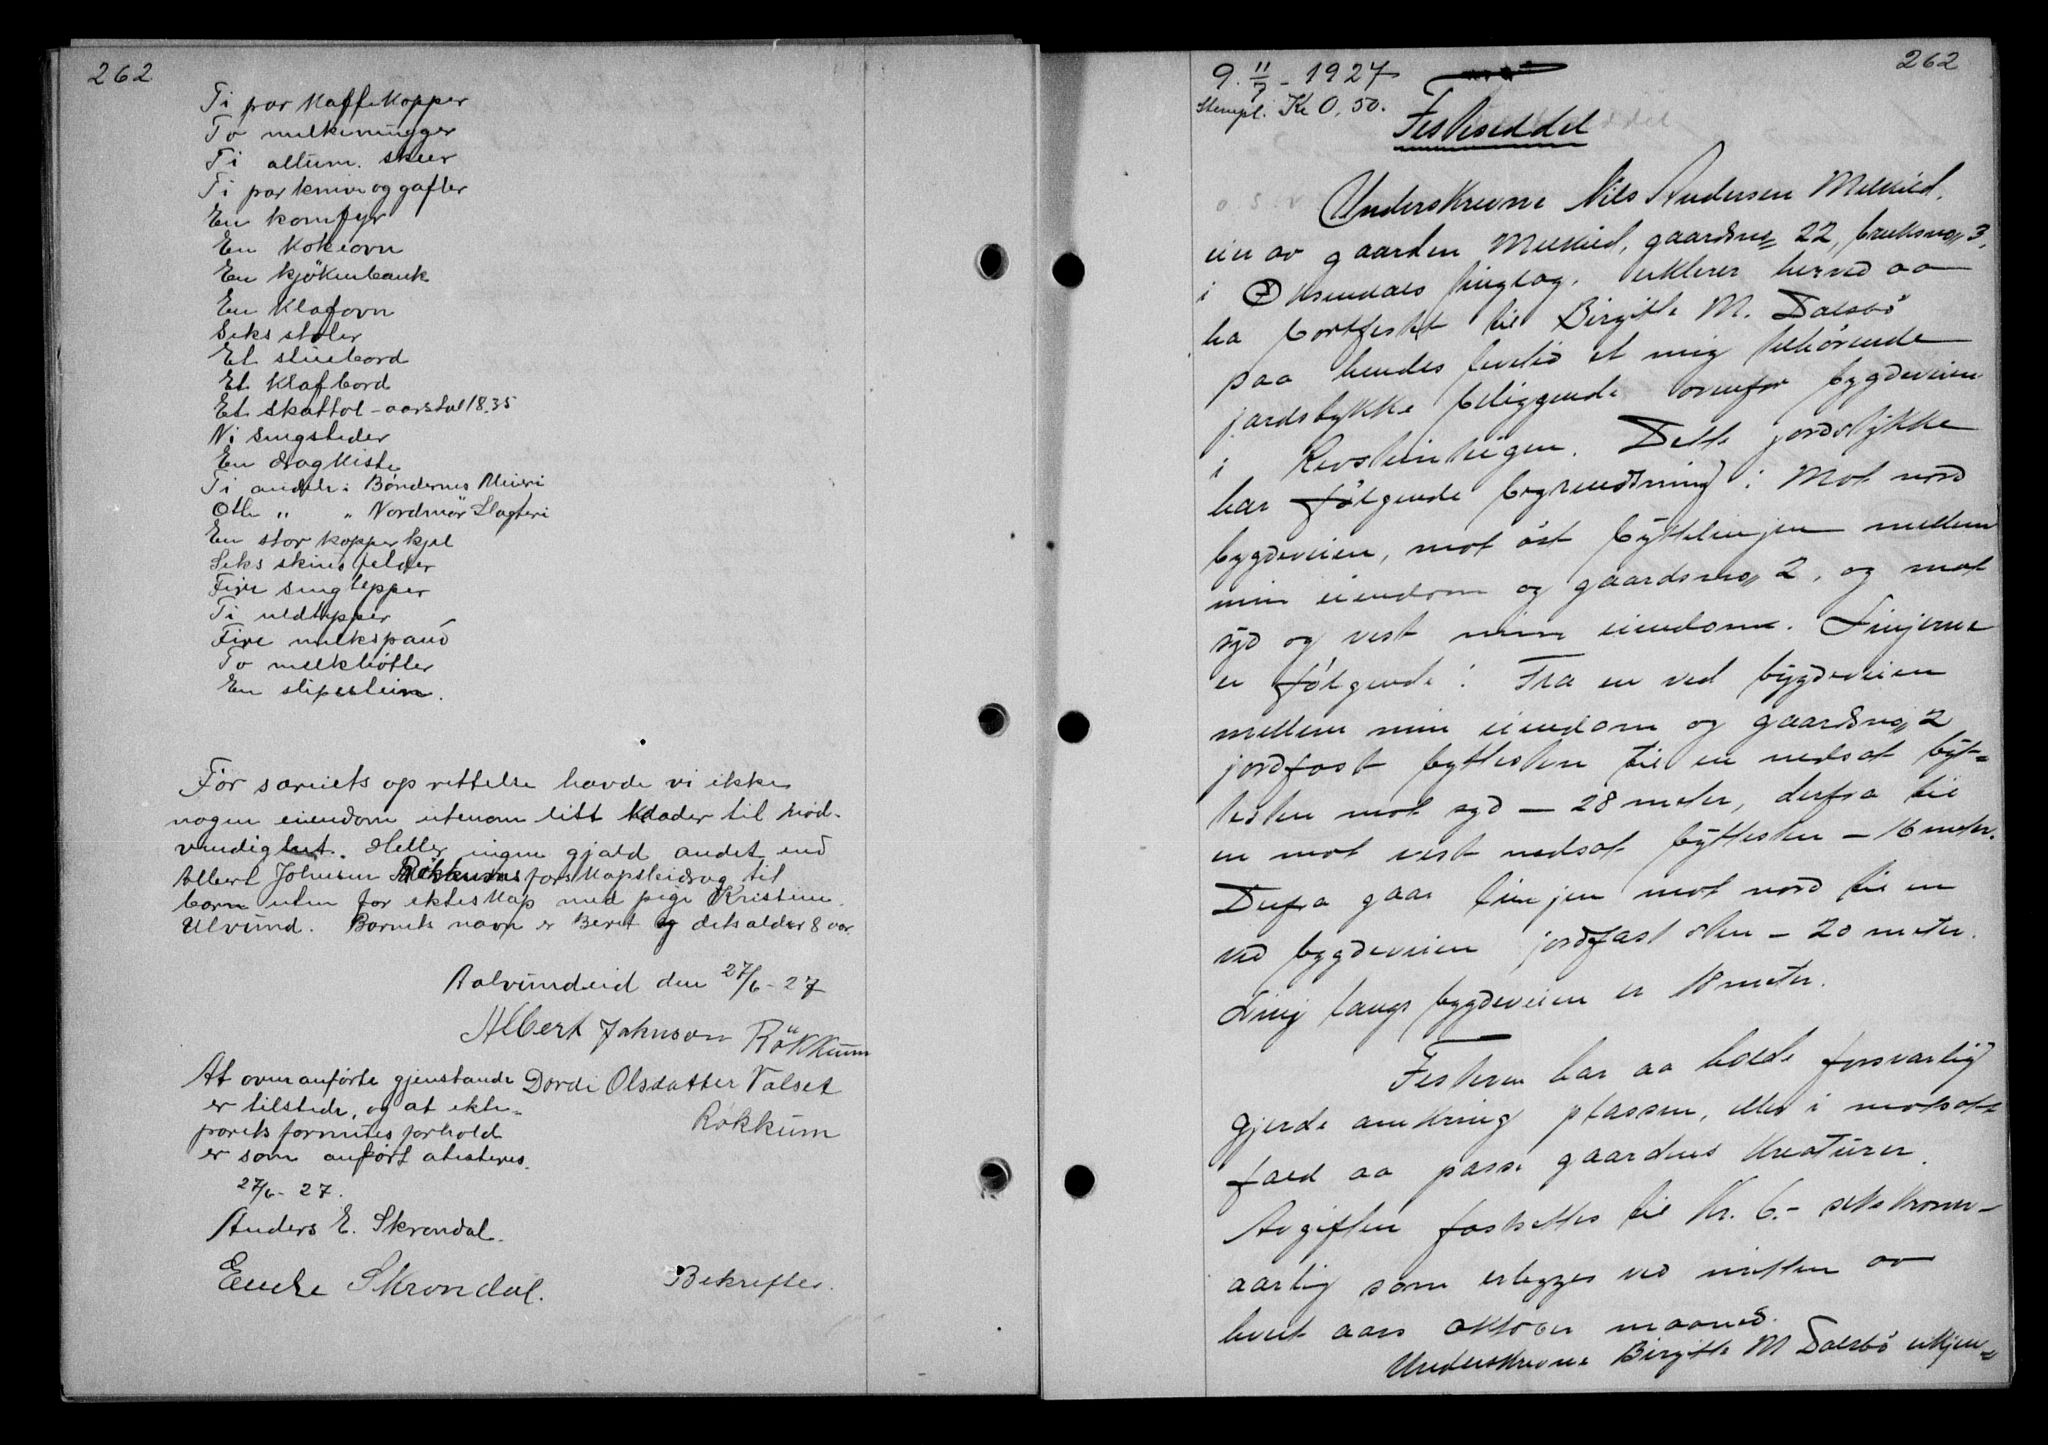 262
Ti par Kaffekopper
To melkemugger
Ti allum. skeer
Ti par knive og gafler
En komfyr
En Kokeovn
En kjökenbenk
En Klafovn
Seks stoler
Et stuebord
Et Klafbord
Et skattol - aarstal 1835
Ni sengsteder
En dragkiste
Ti andele i Bøndernes Mieri
Otte " " Nordmör Slagteri
En stor kopperkjel
Seks skindfelder
Fire sengtepper
Ti uldtepper
Fire melkspand
To melkbøtter
En slipestein.
Før særeiets oprettelse havde vi ikke
nogen eiendom utenom litt klæder til nød-
vendighet. Heller ingen gjæld andet end
Albert Johnsen Røkkums farskapsbidrag til
barn uten for ekteskap med pige Kristine
Ulvund. Barnets navn er Beret og dets alder 8 aar.
Aalvundeid den 27/6 - 27
Albert Johnson Rökkum
At ovenanførte gjenstande Dordi Olsdatter Valset
er tilstede, og at ekte-
parets formues forhold Røkkum
er som anført atesteres.
27/6 - 27.
Anders E. Skrondal.
Skrondal. Bekreftes.
262
9. 11/7 - 1927
Stempl. Kr 0,50.
Festeseddel
Underskrevne Nils Andersen Melkild,
eier av gaarden Melkild, gaardsno 22, bruksno 3,
i Øksendals tinglag, erklærer herved aa
ha bortfestet til Birgitte M. Dalsbö
paa hendes levetid et mig tilhørende
jordstykke beliggende ovenfor bygdeveien
i. Dette jordstykke
har følgende begrensning: Mot nord
bygdeveien, mot öst byttelinjen mellem
min eiendom og gaardsno 2, og mot
syd og vest min eiendom. Linjerne
er følgende: Fra en ved bygdeveien
mellem min eiendom og gaardsno 2
jordfast byttesten til en nedsat byt-
testen mot syd - 28 meter, derfra til
en mot vest nedsat byttesten - 16 meter.
Derfra gaar linjen mot nord til en
ved bygdeveien jordfast sten - 20 meter.
Linj langs bygdeveien er 18 meter.
Festeren har aa holde forsvarlig
gjerde omkring plassen, eller i motsat
fald aa passe gaardens kreaturer.
Avgiften fastsettes til Kr. 6.- seks kroner -
aarlig som erlegges ved midten av
hvert aars oktober maaned.
Underskrevne Birgitte M Dalsbö erkjen-